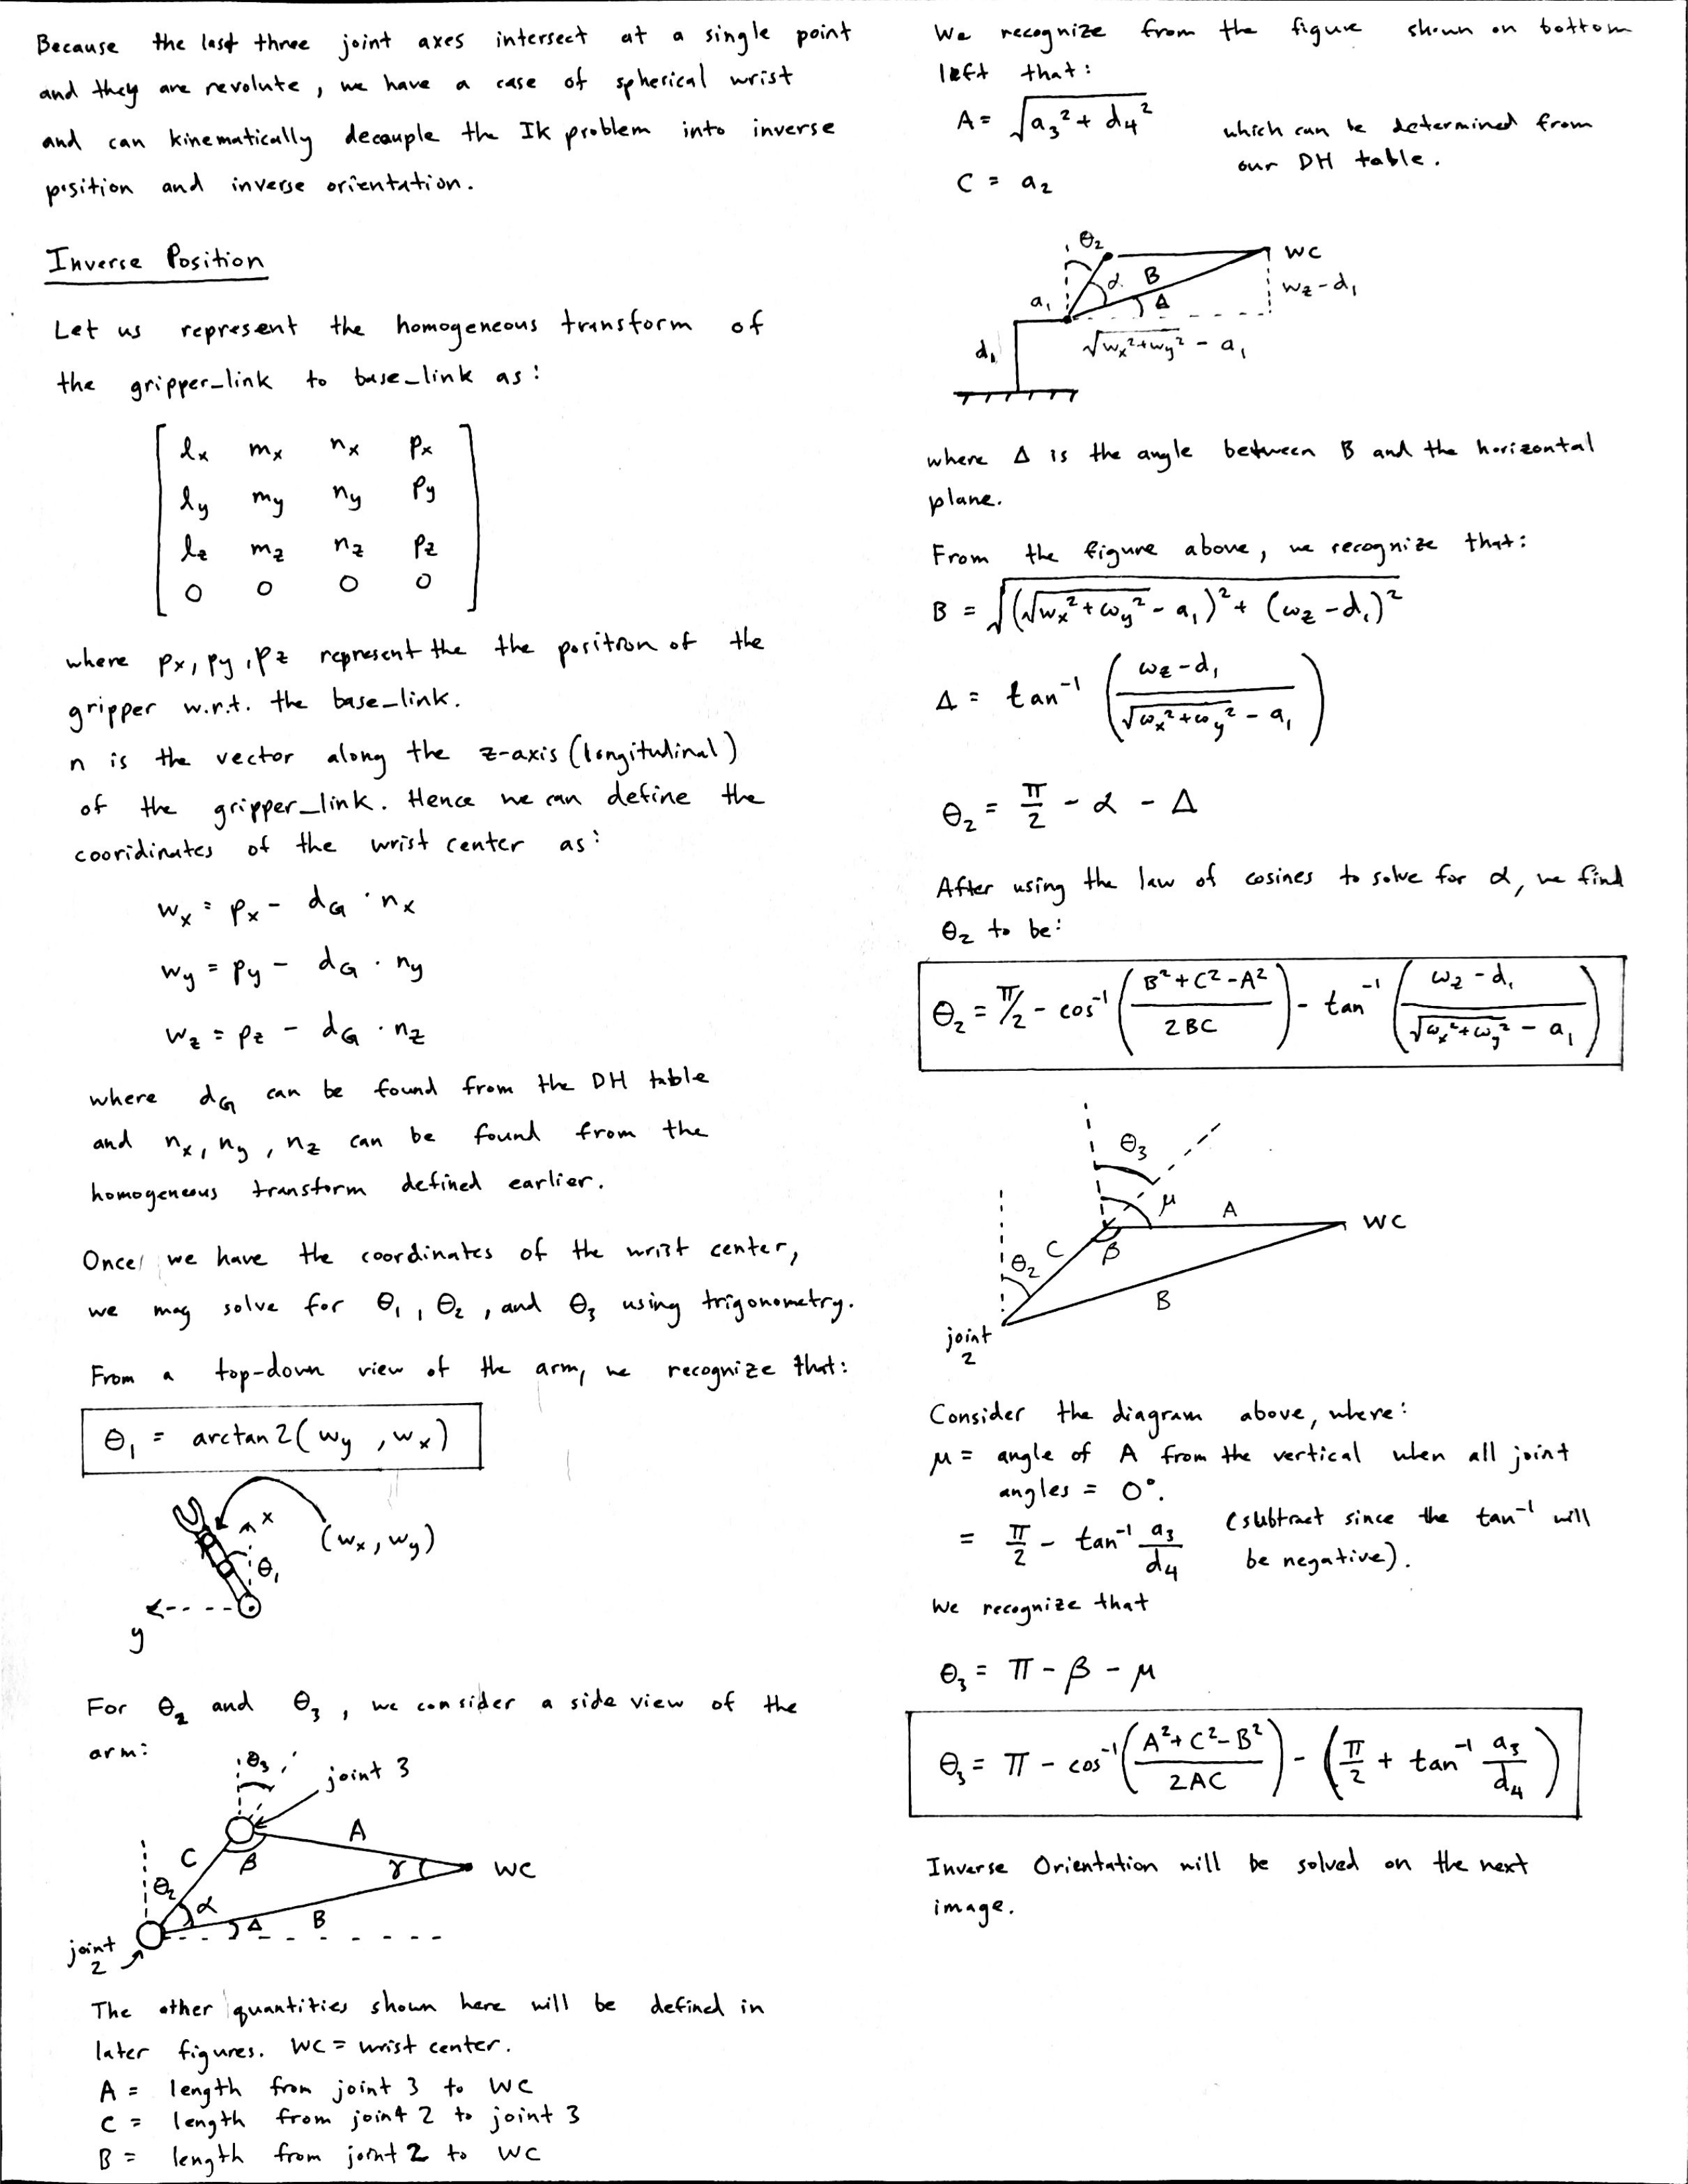 Because the last three joint axes intersect at a single point
and they are revolute, we have a case of spherical wrist
and can kinematically decouple the Ik problem into inverse
position and inverse orientation.
Inverse Position
Let us represent the homogeneous transform of
the gripper_link to base_link as:
lx mx nx px
ly my ny py
lz mz nz pz
0 0 0 0
where px, py, pz represent the the position of the
gripper w.r.t. the base_link.
n is the vector along the z-axis (longitudinal)
of the gripper_link. Hence we can define the
cooridinates of the wrist center as:
wx = px - dG · nx
wy = py - dG · ny
wz = pz - dG · nz
where dG can be found from the DH table
and nx, ny, nz can be found from the
homogeneous transform defined earlier.
Once we have the coordinates of the wrist center,
we may solve for θ1, θ2, and θ3 using trigonometry.
From a top-down view of the arm, we recognize that:
θ1 = arctan2(wy, wx)
x
(wx, wy)
θ1
y
For θ2 and θ3, we consider a side view of the
arm:
θ3
joint 3
C
A
β
γ
WC
θ2
α
Δ
B
joint
2
The other quantities shown here will be defined in
later figures. WC = wrist center.
A = length from joint 3 to WC
C = length from joint 2 to joint 3
B = length from joint 2 to WC
We recognize from the figure shown on bottom
left that:
A = √(a3² + d4²)
which can be determined from
our DH table.
C = a2
θ2
WC
α
B
Δ
wz - d1
a1
√(wx²+wy²) - a1
d1
where Δ is the angle between B and the horizontal
plane.
From the figure above, we recognize that:
B = √((√(wx²+wy²) - a1)² + (wz - d1)²)
Δ = tan⁻¹((wz - d1)/(√(wx²+wy²) - a1))
θ2 = π/2 - α - Δ
After using the law of cosines to solve for α, we find
θ2 to be:
θ2 = π/2 - cos⁻¹((B²+C²-A²)/(2BC)) - tan⁻¹((wz - d1)/(√(wx²+wy²) - a1))
θ3
μ
A
WC
C
β
θ2
B
joint
2
Consider the diagram above, where:
μ = angle of A from the vertical when all joint
angles = 0°.
= π/2 - tan⁻¹ a3/d4 (subtract since the tan⁻¹ will
be negative).
We recognize that
θ3 = π - β - μ
θ3 = π - cos⁻¹((A²+C²-B²)/(2AC)) - (π/2 + tan⁻¹ a3/d4)
Inverse Orientation will be solved on the next
image.